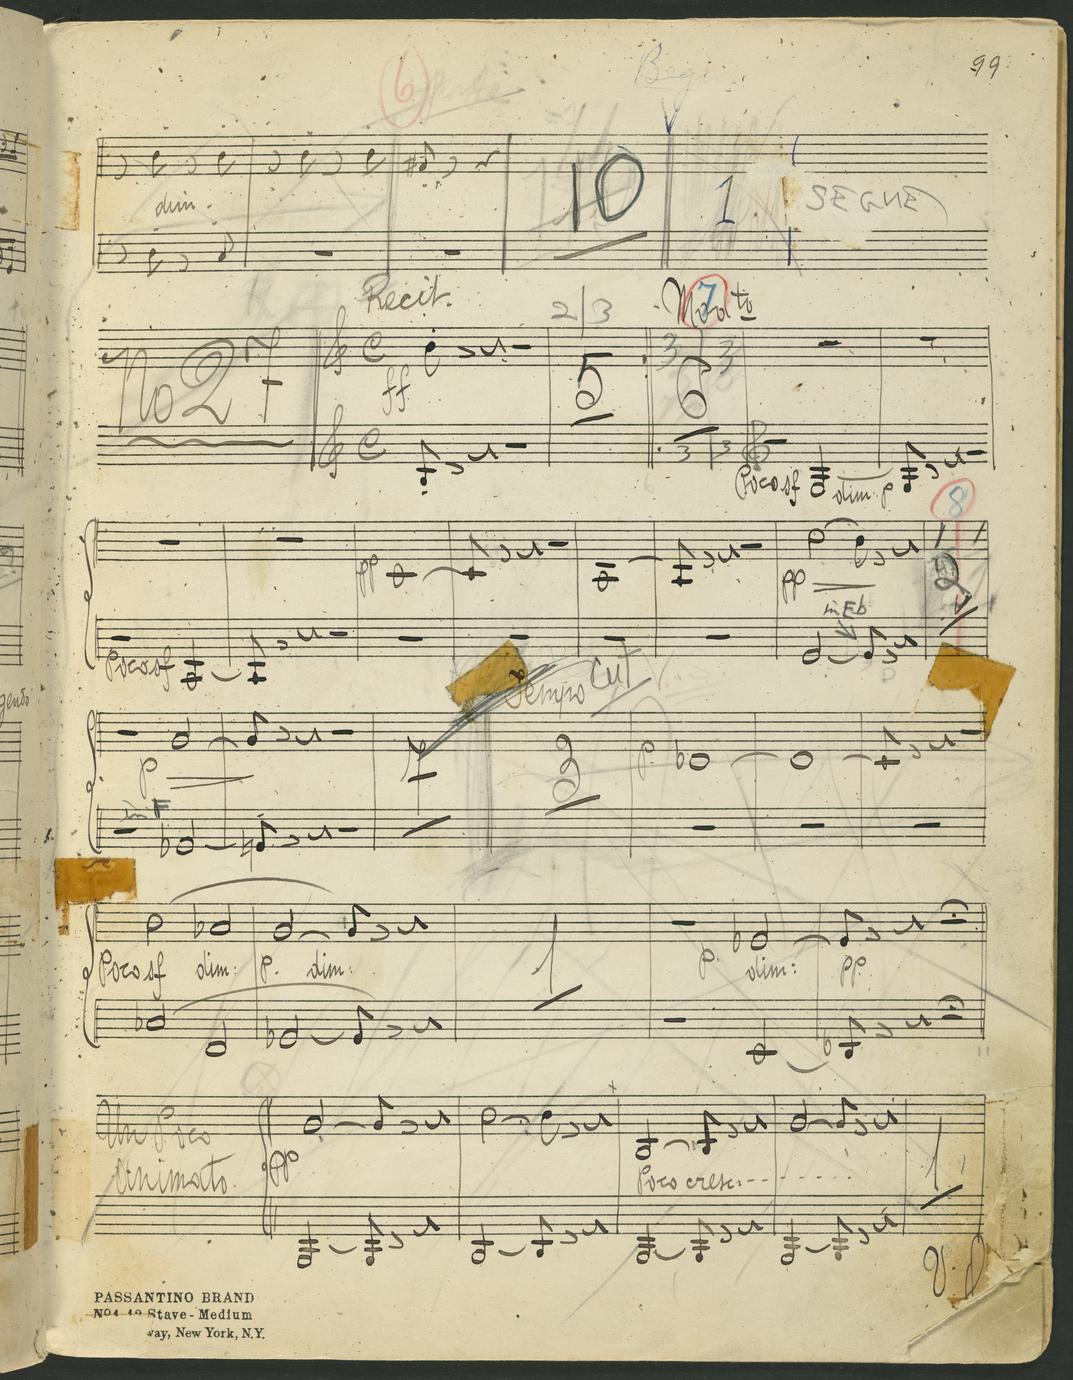 99
6
dim.
10
1
SEGUE
Recit.
2/3
7
No 27
ff
5
3 3
6
3 3
Poco sf dim. p
8
pp
pp
in Eb
2
Poco sf
Tempo
Cut
p
1
3
p.
in F
Poco sf dim: p. dim:
1
p. dim: pp.
Un Poco
Animato.
pp
Poco cresc:
1
PASSANTINO BRAND
Stave - Medium
way, New York, N.Y.